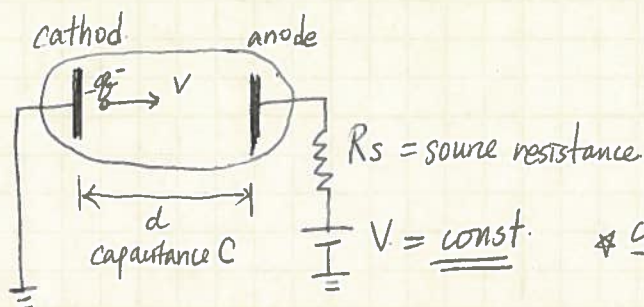 cathod.
anode
-q-
V
Rs = source resistance
d
capacitance C
V = const.